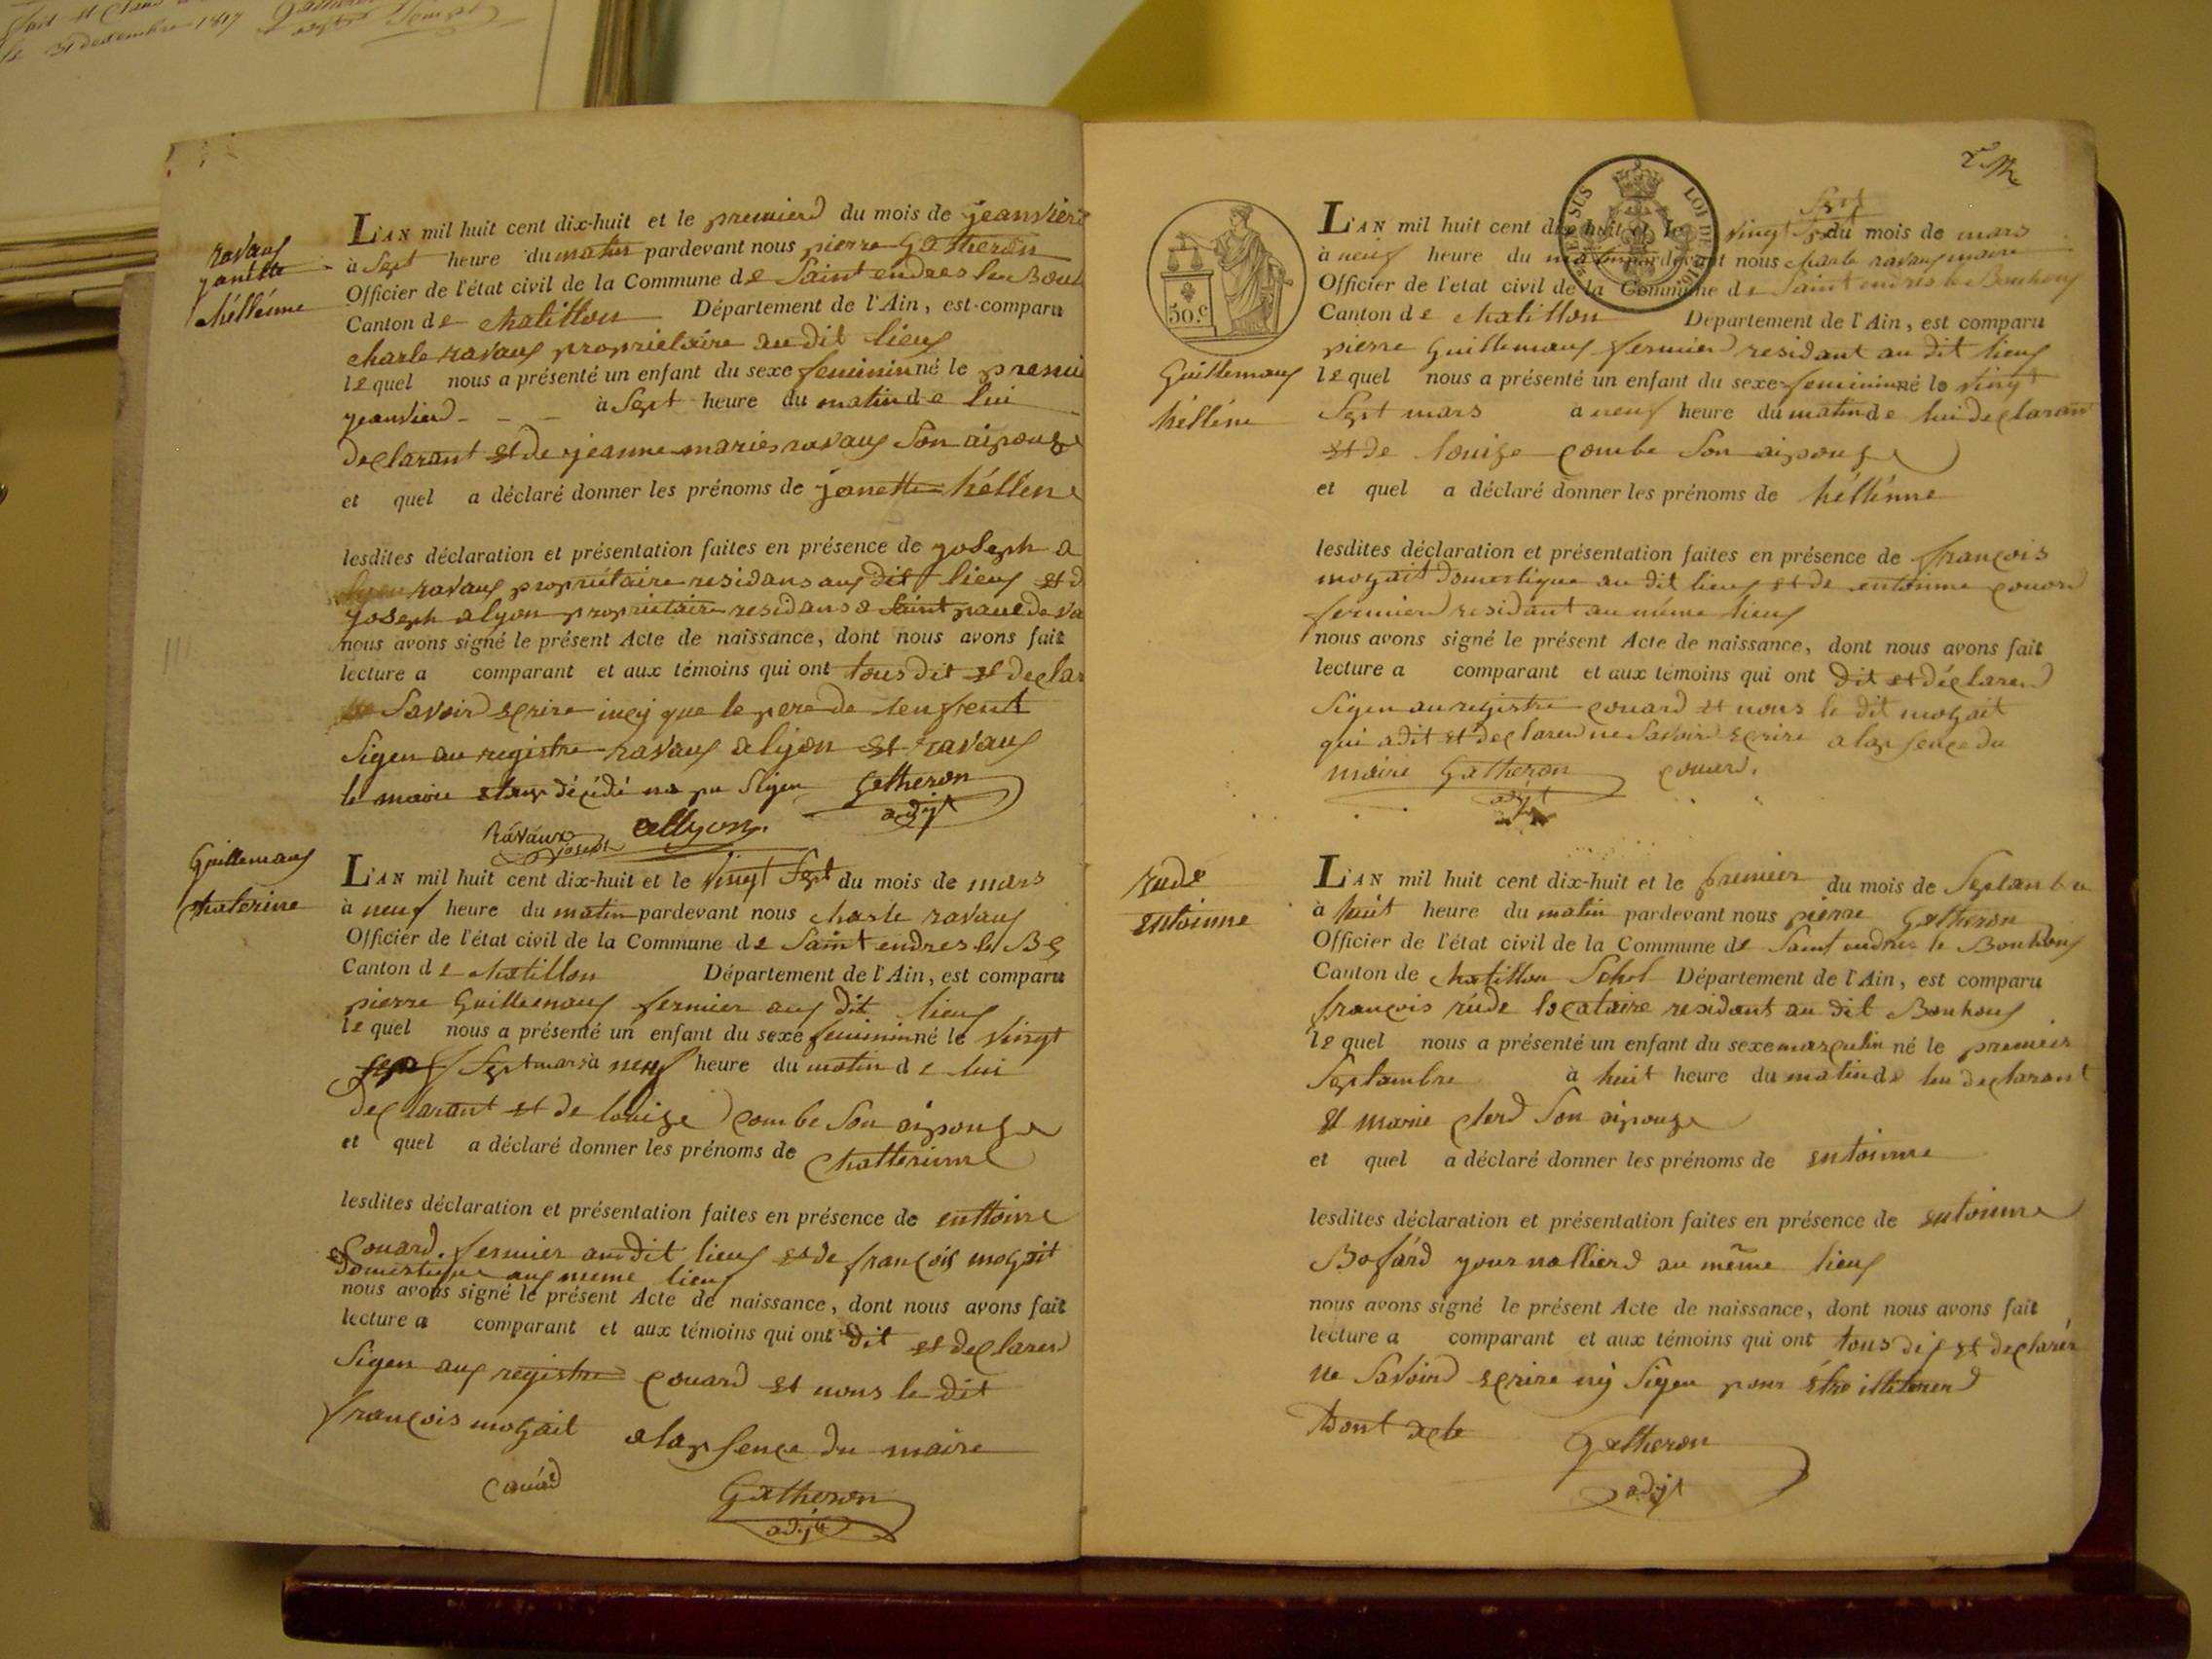 fait et clos
le 31 decembre 1817
ravaux
janette
héllénne
L'AN mil huit cent dix-huit et le premierd du mois de jeanvierd
à Sept heure du matin pardevant nous pierre Gatheron
Officier de l'état civil de la Commune de Saint endres le Bouh
Canton de chatillon Département de l'Ain, est comparu
charle ravaux proprietaire au dit lieux
lequel nous a présenté un enfant du sexe feminin né le premie
jeanvierd à Sept heure du matin de lui
declarant et de jeanne marie ravaux Son aipouze
et quel a déclaré donner les prénoms de janette héllene
lesdites déclaration et présentation faites en présence de joseph a
ravaux propriétaire residans aux dit lieux et d
joseph alyon proprietaire residans a Saint paul de va
nous avons signé le présent Acte de naissance, dont nous avons fait
lecture a comparant et aux témoins qui ont tous dit et declar
Savoird ecrire incy que le pere de lenfent
Sigen au registre ravaux alyon et ravaux
le maire etanp décédé na pu Sigen Gatheron
adjt
Ravaux joseph allyon
Guillemaux
chaterine
L'AN mil huit cent dix-huit et le vingt Sept du mois de mars
à neuf heure du matin pardevant nous charle ravaux
Officier de l'état civil de la Commune de Saint endres le B
Canton de chatillon Département de l'Ain, est comparu
pierre Guillemaux fermier aux dit lieux
lequel nous a présenté un enfant du sexe feminin né le vingt
Sept mars à neuf heure du matin de lui
declarant et de louize combe Son aipouze
et quel a déclaré donner les prénoms de chatterinne
lesdites déclaration et présentation faites en présence de enttoinne
Couard fermier au dit lieux et de françois mozait
domestique aux meme lieux
nous avons signé le présent Acte de naissance, dont nous avons fait
lecture a comparant et aux témoins qui ont dit et declarerd
Sigen aux registre couard et nous le dit
françois mozait alapsence du maire
couard
Gatheron
adjt
50.c
SUS LOI DE
Guillemaux
héllène
L'AN mil huit cent dix-huit et le vingt Sept du mois de mars
à neuf heure du matin pardevant nous charle ravaux maire
Officier de l'etat civil de la Commune de Saint endres le Bouhoux
Canton de chatillon Département de l'Ain, est comparu
pierre Guillemaux fermierd residant au dit lieux
lequel nous a présenté un enfant du sexe feminin né le vingt
Sept mars à neuf heure du matin de lui declarant
et de louize combe Son aipouze
et quel a déclaré donner les prénoms de héllénne
lesdites déclaration et présentation faites en présence de françois
mozait domestique au dit lieux et de entoinne couard
fermierd residant au méme lieux
nous avons signé le présent Acte de naissance, dont nous avons fait
lecture a comparant et aux témoins qui ont dit et déclarerd
Sigen au registre couard et nous le dit mozait
qui a dit et declarerd ne Savoird ecrire alapsence du
maire Gatheron couard
adjt
rude
entoinne
L'AN mil huit cent dix-huit et le premier du mois de Septanbre
à huit heure du matin pardevant nous pierre Gatheron
Officier de l'état civil de la Commune de Saint endres le Bouhoux
Canton de chatillon Département de l'Ain, est comparu
françois rude locataire residant au dit Bouhoux
lequel nous a présenté un enfant du sexe masculin né le premier
Septambre à huit heure du matin de lui declarant
et marie clerd Son aipouze
et quel a déclaré donner les prénoms de entoinne
lesdites déclaration et présentation faites en présence de entoinne
Bofard journallierd au même lieux
nous avons signé le présent Acte de naissance, dont nous avons fait
lecture a comparant et aux témoins qui ont tous dit et declarér
ne Savoird ecrire nÿ Sigen pour étre illitererd
dont acte Gatheron
adjt